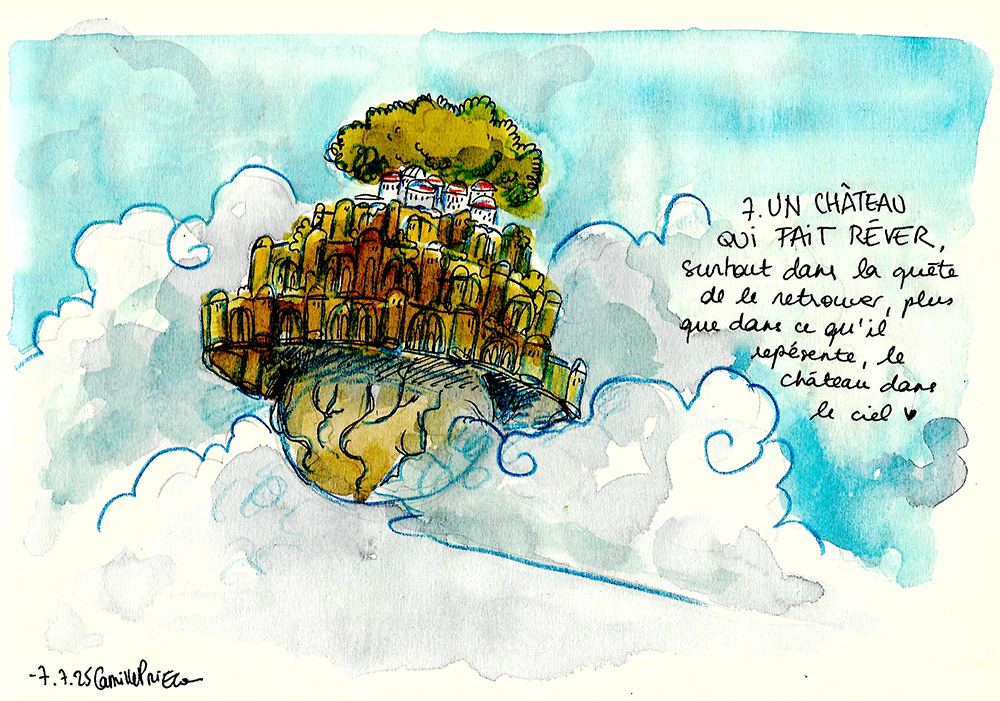 7. UN CHÂTEAU
QUI FAIT RÊVER,
surtout dans la quête
de le retrouver, plus
que dans ce qu'il
repésente, le
château dans
le ciel ♥
-7.7.25 Camille Prieto